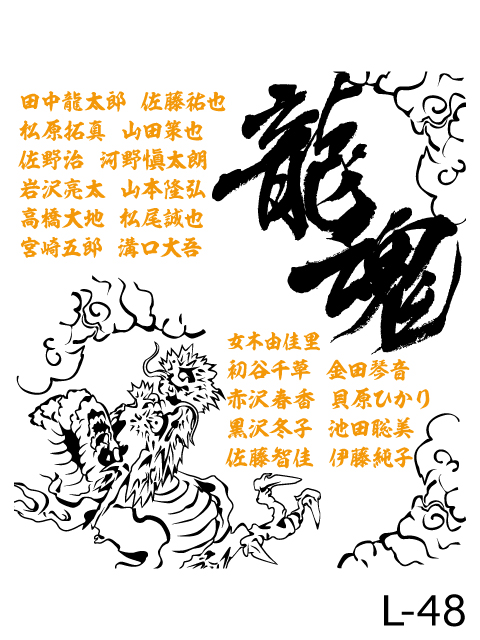 田中龍太郎 佐藤祐也
松原拓真 山田策也
佐野治 河野慎太朗
岩沢亮太 山本隆弘
高橋大地 松尾誠也
宮崎五郎 溝口大吾
龍魂
女木由佳里
初谷千草 金田琴音
赤沢春香 貝原ひかり
黒沢冬子 池田聡美
佐藤智佳 伊藤純子
L-48